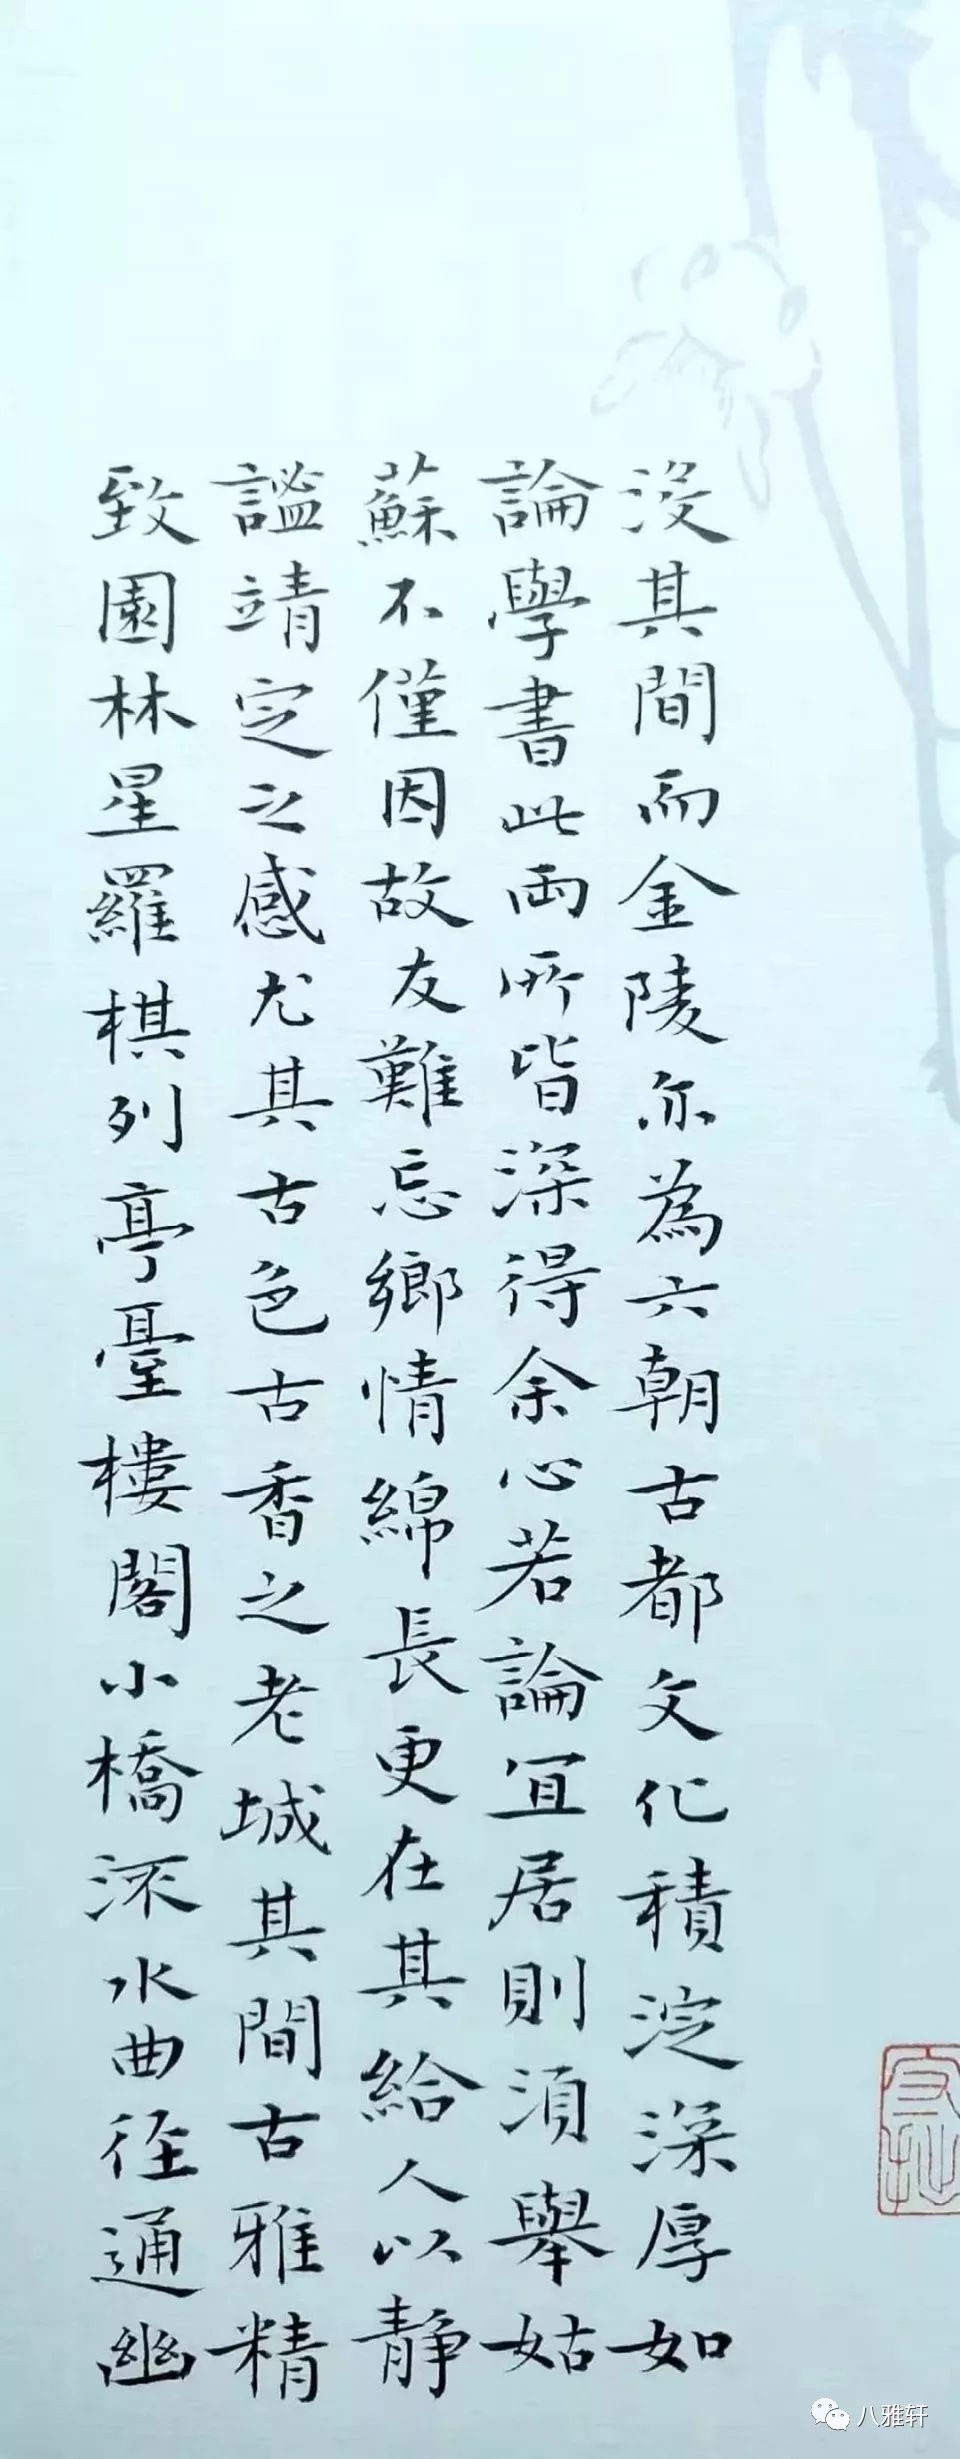 没其間而金陵亦為六朝古都文化積淀深厚如
論學書此兩所皆深得余心若論宜居則須舉姑
蘇不僅因故友難忘鄉情綿長更在其給人以靜
謐靖定之感尤其古色古香之老城其間古雅精
致園林星羅棋列亭臺樓閣小橋流水曲徑通幽
八雅轩